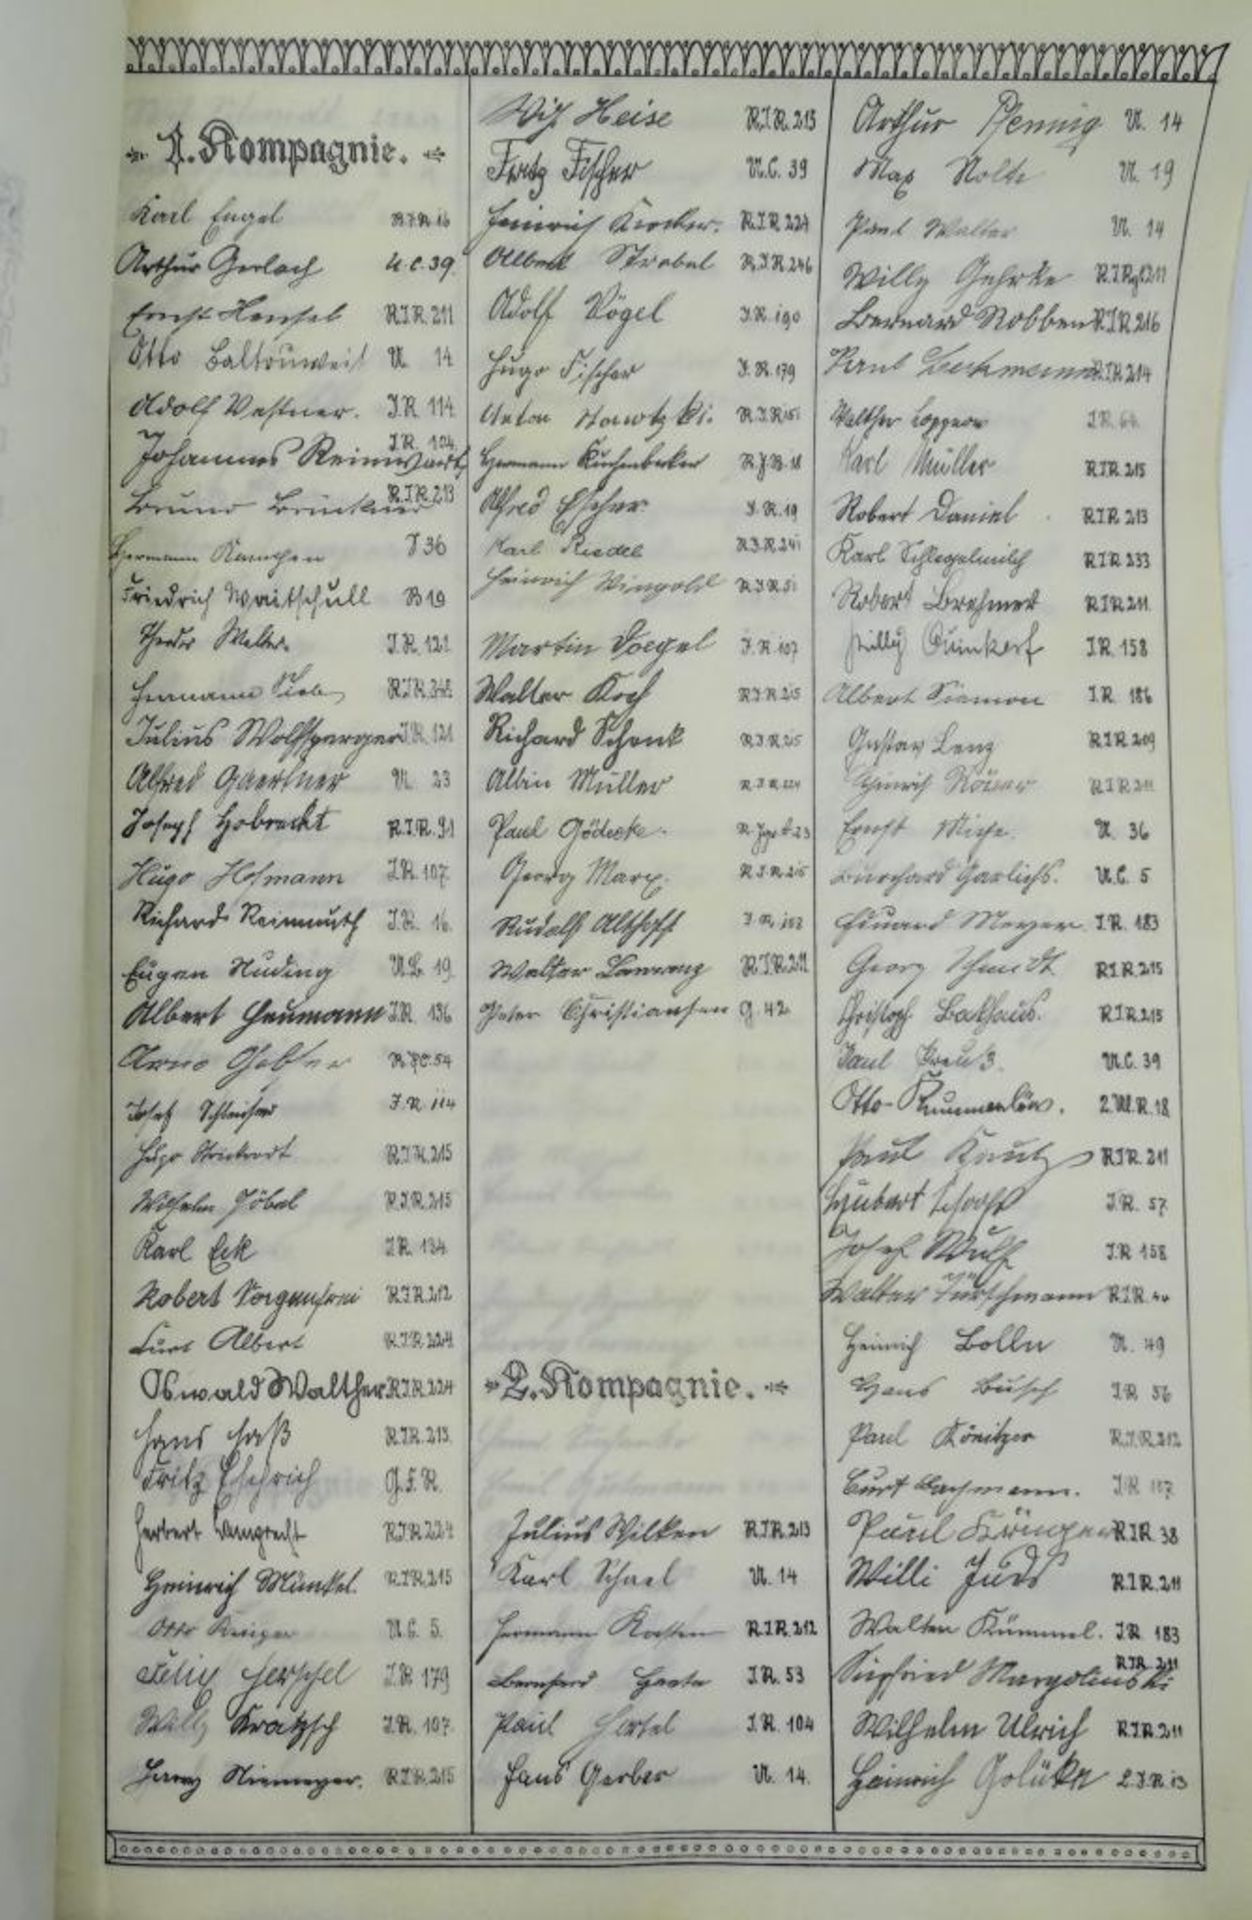 1. Kompagnie.
Karl Engel R.I.R. 16
Arthur Gerlach U.C. 39
Ernst Hensel R.I.R. 211
Otto U. 14
Adolf Vestner. I.R. 114
Johannes Reinwardt I.R. 104
Bruno Brinkmeier R.I.R. 213
Hermann Kamchen T 36
Friedrich Waitschull B 19
Theodor Walter. I.R. 121
Hermann R.I.R. 248
Julius Wolfsperger I.R. 121
Alfred Gaertner U. 23
Joseph Hobrecht R.I.R. 91
Hugo Hofmann I.R. 107
Richard Reinmuth I.R. 16
Eugen Nuding 19
Albert Heumann I.R. 136
Arno 54
Josef I.R. 114
Hugo R.I.R. 215
Wilhelm Göbel R.I.R. 215
Karl Eck I.R. 134
Robert R.I.R. 212
Curt Albert R.I.R. 224
Oswald Walther R.I.R. 224
Hans Haß R.I.R. 213
Fritz Eschrich G.F.R.
Herbert Lamprecht R.I.R. 224
Heinrich Münkel R.I.R. 215
Otto Krüger U.C. 5.
Felix Herschel I.R. 179
Willy Kratzsch I.R. 107
Harry Niemeyer. R.I.R. 215
Wilh. Heise R.I.R. 215
Fritz Fischer U.C. 39
Heinrich R.I.R. 224
Albert Strobel R.I.R. 246
Adolf Vögel I.R. 190
Hugo Fischer I.R. 179
Anton R.I.R. 151
Hermann Kuchenbecker 18
Alfred Escher I.R. 19
Karl Riedel R.I.R. 241
Heinrich Wingold R.I.R. 51
Martin Voegel I.R. 107
Walter Koch R.I.R. 215
Richard Schenk R.I.R. 215
Albin Müller R.I.R. 224
Paul Gödecke. 23
Georg Marx. R.I.R. 215
Rudolf Althoff I.R.
Walter Lawrenz R.I.R. 211
Peter Christiansen G. 42
2. Kompagnie.
Julius Wilken R.I.R. 213
Karl Schael U. 14
Hermann Kasten R.I.R. 212
Bernhard I.R. 53
Paul Hertel I.R. 104
Hans Gerber U. 14.
Arthur Pfennig U. 14
Max Nolte U. 19
Paul Walter U. 14
Willy Gehrke 211
Bernard Robben R.I.R. 216
Paul Beckmann R.I.R. 214
Walther I.R. 64
Karl Müller R.I.R. 215
Robert Daniel R.I.R. 213
Karl Schlegelmilch R.I.R. 233
Robert Brehmer R.I.R. 211
Willy Quinkert I.R. 158
Albert Siemon I.R. 186
Gustav Lenz R.I.R. 209
Heinrich Römer R.I.R. 211
Ernst U. 36
Burchard Garlichs. U.C. 5
Eduard Meyer I.R. 183
Georg Schmidt R.I.R. 215
Christoph Bakhaus. R.I.R. 215
Paul U.C. 39
Otto Krummenlöw. 18
Paul Kautz R.I.R. 211
Hubert Schoofs I.R. 57
Josef Wulf I.R. 158
Walter R.I.R.
Heinrich U. 49
Hans Busch I.R. 56
Paul Könitzer R.I.R. 212
Curt Bachmann. I.R. 107
Paul R.I.R. 38
Willi Juds R.I.R. 211
Walter Kümmel. I.R. 183
Siegfried Margolinski R.I.R. 211
Wilhelm Ulrich R.I.R. 211
Heinrich Golüke L.I.R. 13